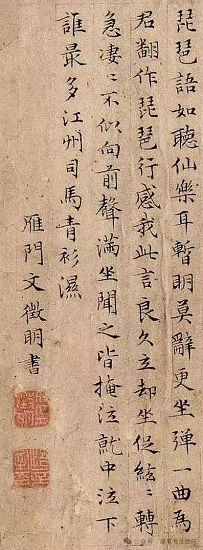 琵琶語如聽仙樂耳暫明莫辭更坐彈一曲爲
君翻作琵琶行感我此言良久立却坐促絃絃轉
急凄凄不似向前聲滿坐聞之皆掩泣就中泣下
誰最多江州司馬青衫濕
雁門文徵明書